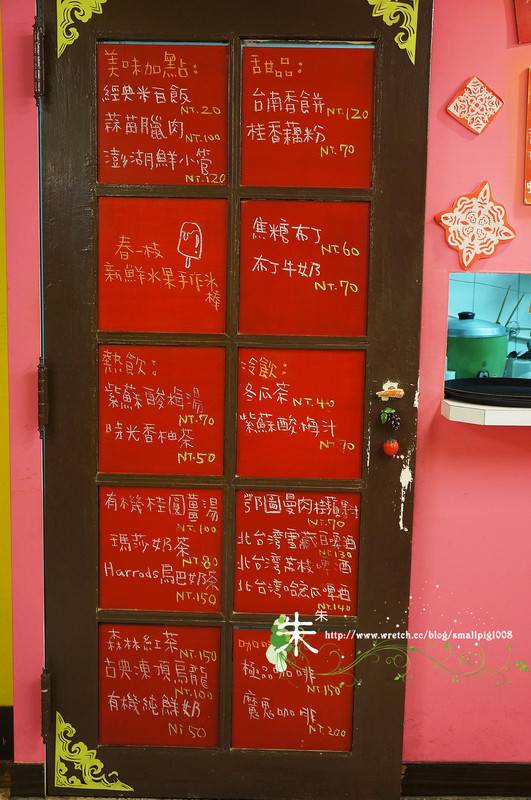 美味加點:
經典米百飯
NT.20
蒜苗臘肉
NT.100
澎湖鮮小管
NT.120
甜品:
台南香餅
NT.120
桂香藕粉
NT.70
春一枝
新鮮水果手作冰
棒
焦糖布丁
NT.60
布丁牛奶
NT.70
熱飲:
紫蘇酸梅湯
NT.70
時光香柚茶
NT.50
冷飲:
冬瓜茶
NT.40
紫蘇酸梅汁
NT.70
有機桂圓薑湯
NT.100
瑪莎奶茶
NT.80
Harrods烏巴奶茶
NT.150
鄂圖曼肉桂蘋果汁
NT.70
北台灣雪藏白啤酒
NT.130
北台灣荔枝啤酒
北台灣哈密瓜啤酒
NT.140
森林紅茶
NT.150
古典凍頂烏龍
NT.100
有機純鮮奶
NT 50
咖啡
極品咖啡
NT.150
魔鬼咖啡
NT.200
朱
朱
http://www.wretch.cc/blog/smallpig1008